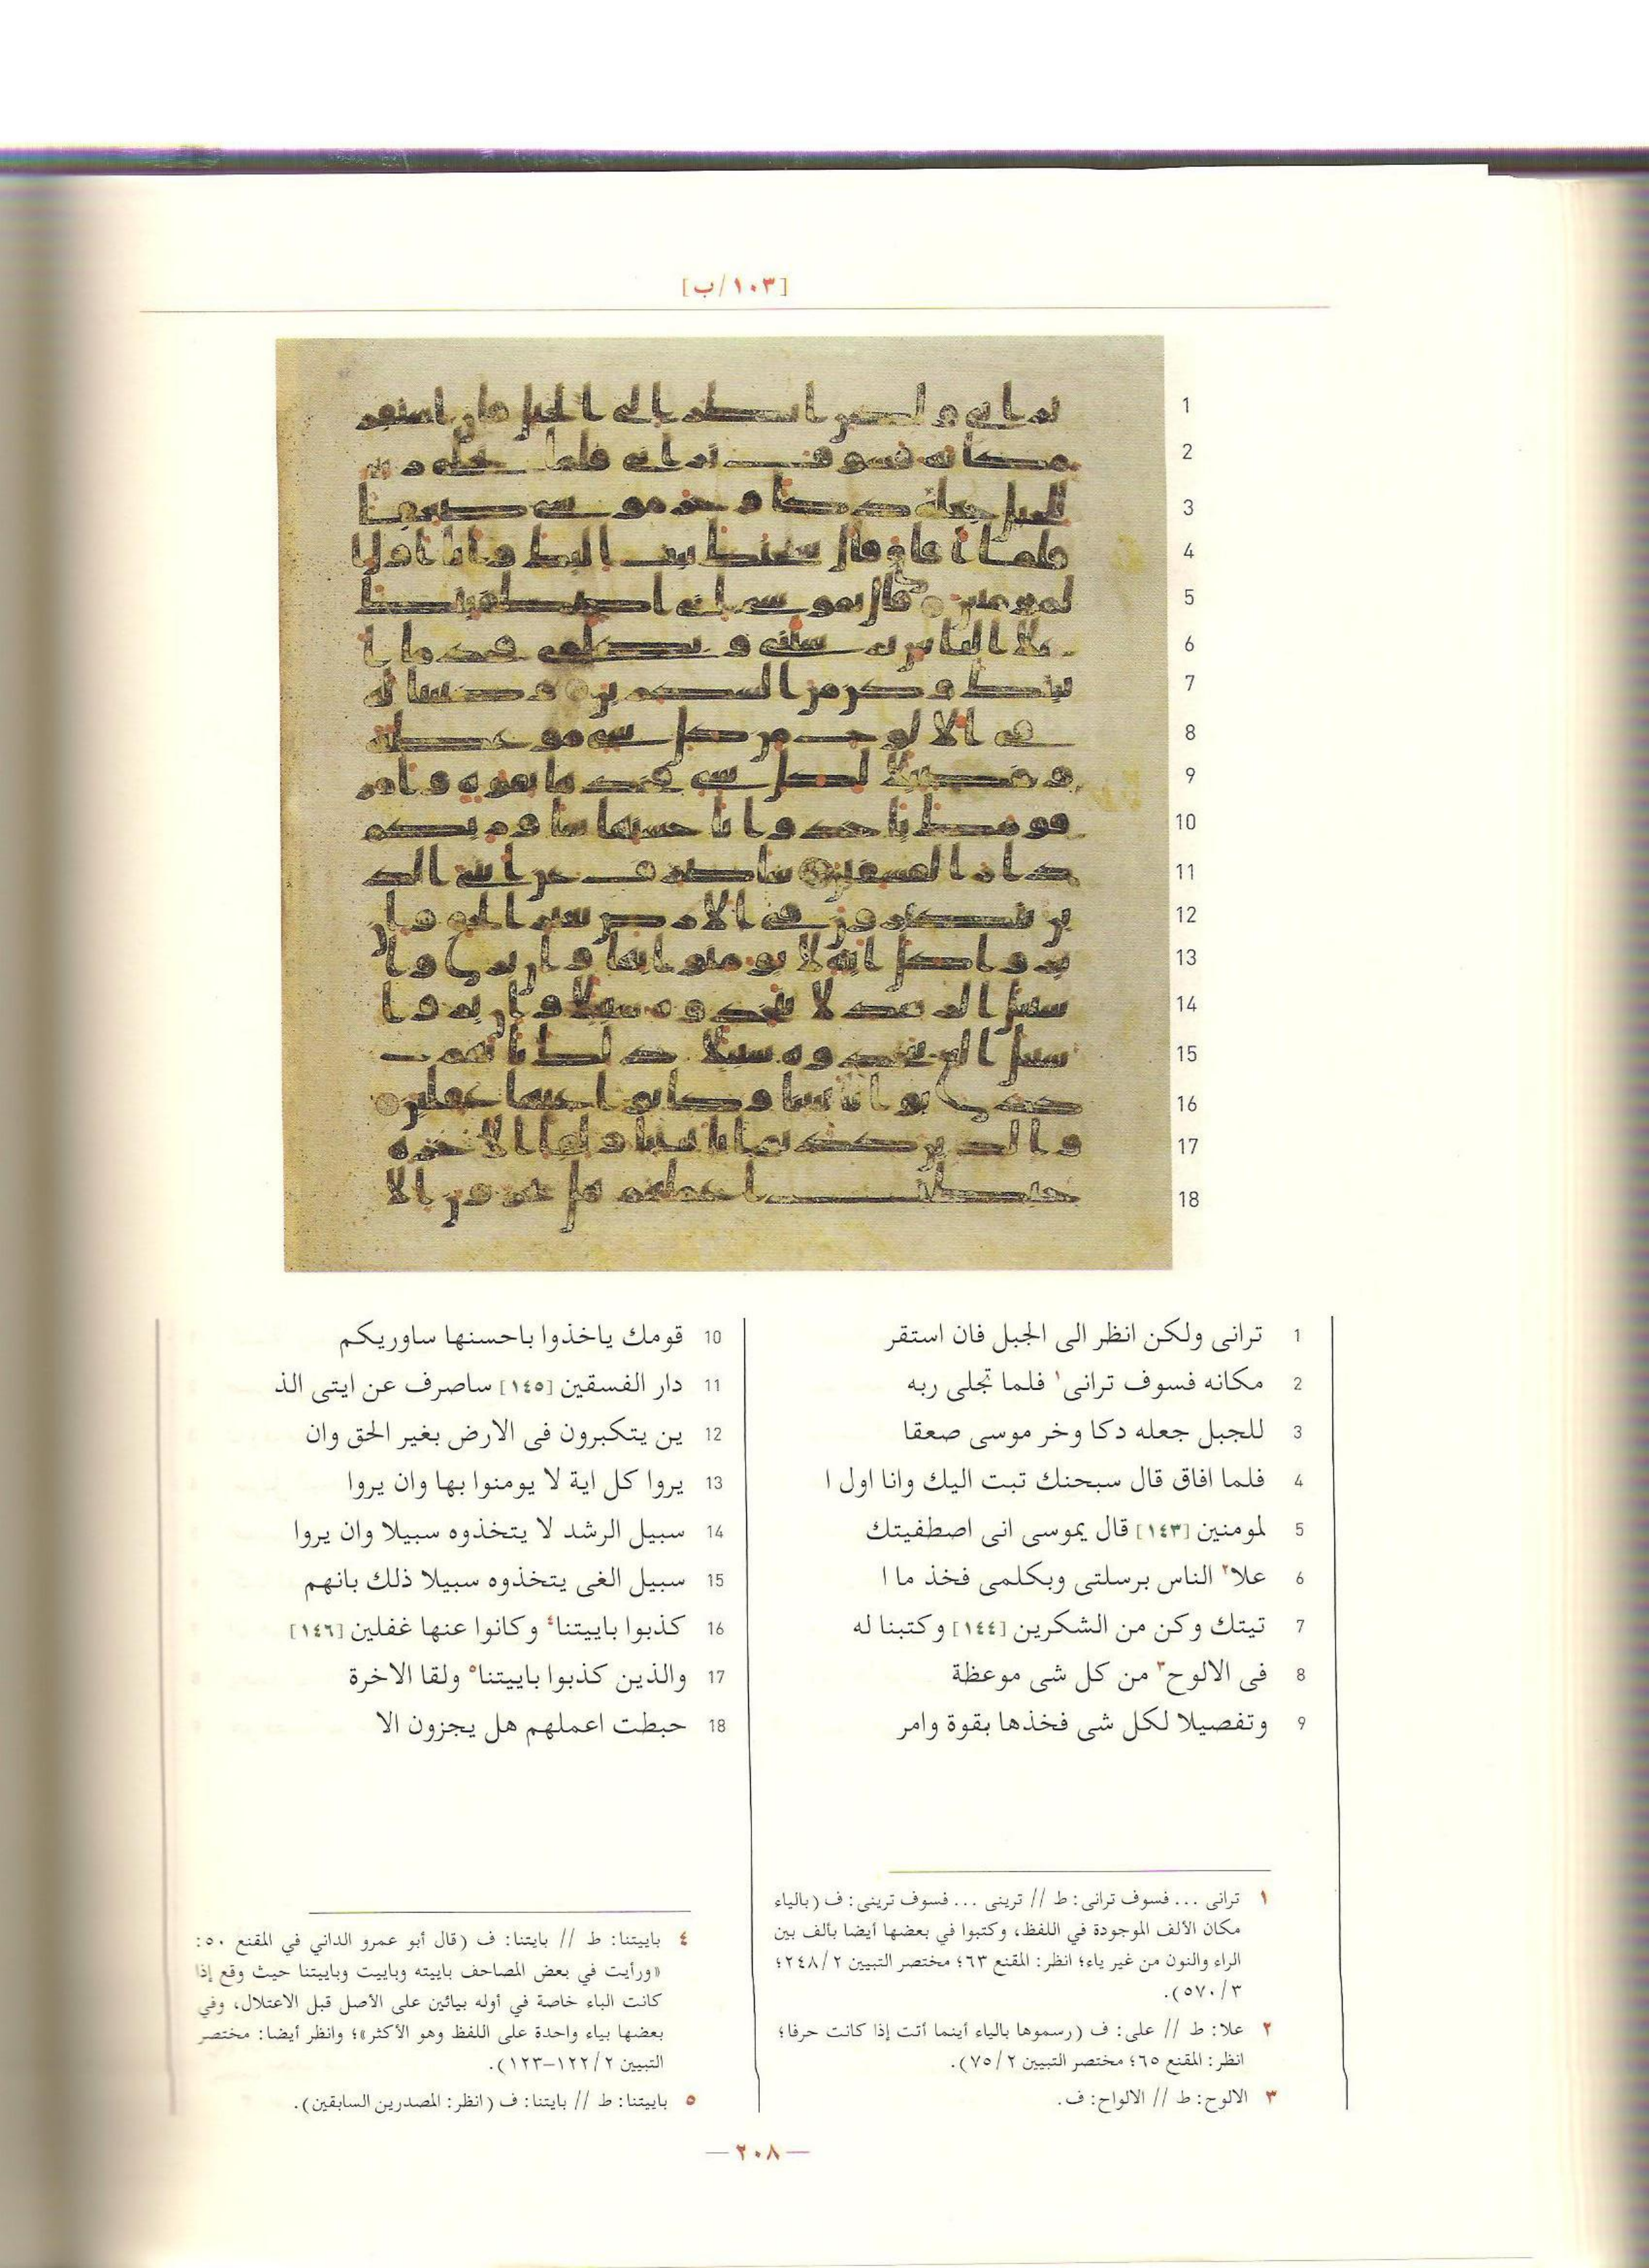 [١٠٣/ب]
1 ترانى ولكن انظر الى الجبل فان استقر
2 مكانه فسوف ترانى١ فلما تجلى ربه
3 للجبل جعله دكا وخر موسى صعقا
4 فلما افاق قال سبحنك تبت اليك وانا اول ا
5 لمومنين [١٤٣] قال يموسى انى اصطفيتك
6 علا٢ الناس برسلتى وبكلمى فخذ ما ا
7 تيتك وكن من الشكرين [١٤٤] وكتبنا له
8 فى الالوح٣ من كل شى موعظة
9 وتفصيلا لكل شى فخذها بقوة وامر
10 قومك ياخذوا باحسنها ساوريكم
11 دار الفسقين [١٤٥] ساصرف عن ايتى الذ
12 ين يتكبرون فى الارض بغير الحق وان
13 يروا كل اية لا يومنوا بها وان يروا
14 سبيل الرشد لا يتخذوه سبيلا وان يروا
15 سبيل الغى يتخذوه سبيلا ذلك بانهم
16 كذبوا باييتنا٤ وكانوا عنها غفلين [١٤٦]
17 والذين كذبوا باييتنا٥ ولقا الاخرة
18 حبطت اعملهم هل يجزون الا
١ ترانى ... فسوف ترانى: ط // ترينى ... فسوف ترينى: ف (بالياء
مكان الألف الموجودة في اللفظ، وكتبوا في بعضها أيضا بألف بين
الراء والنون من غير ياء؛ انظر: المقنع ٦٣؛ مختصر التبيين ٢٤٨/٢؛
٥٧٠/٣).
٢ علا: ط // على: ف (رسموها بالياء أينما أتت إذا كانت حرفا؛
انظر: المقنع ٦٥؛ مختصر التبيين ٧٥/٢).
٣ الالوح: ط // الالواح: ف.
٤ باييتنا: ط // بايتنا: ف (قال أبو عمرو الداني في المقنع ٥٠:
«ورأيت في بعض المصاحف باييته وباييت وباييتنا حيث وقع إذا
كانت الباء خاصة في أوله بيائين على الأصل قبل الاعتلال، وفي
بعضها بياء واحدة على اللفظ وهو الأكثر»؛ وانظر أيضا: مختصر
التبيين ١٢٢/٢–١٢٣).
٥ باييتنا: ط // بايتنا: ف (انظر: المصدرين السابقين).
— ٢٠٨ —